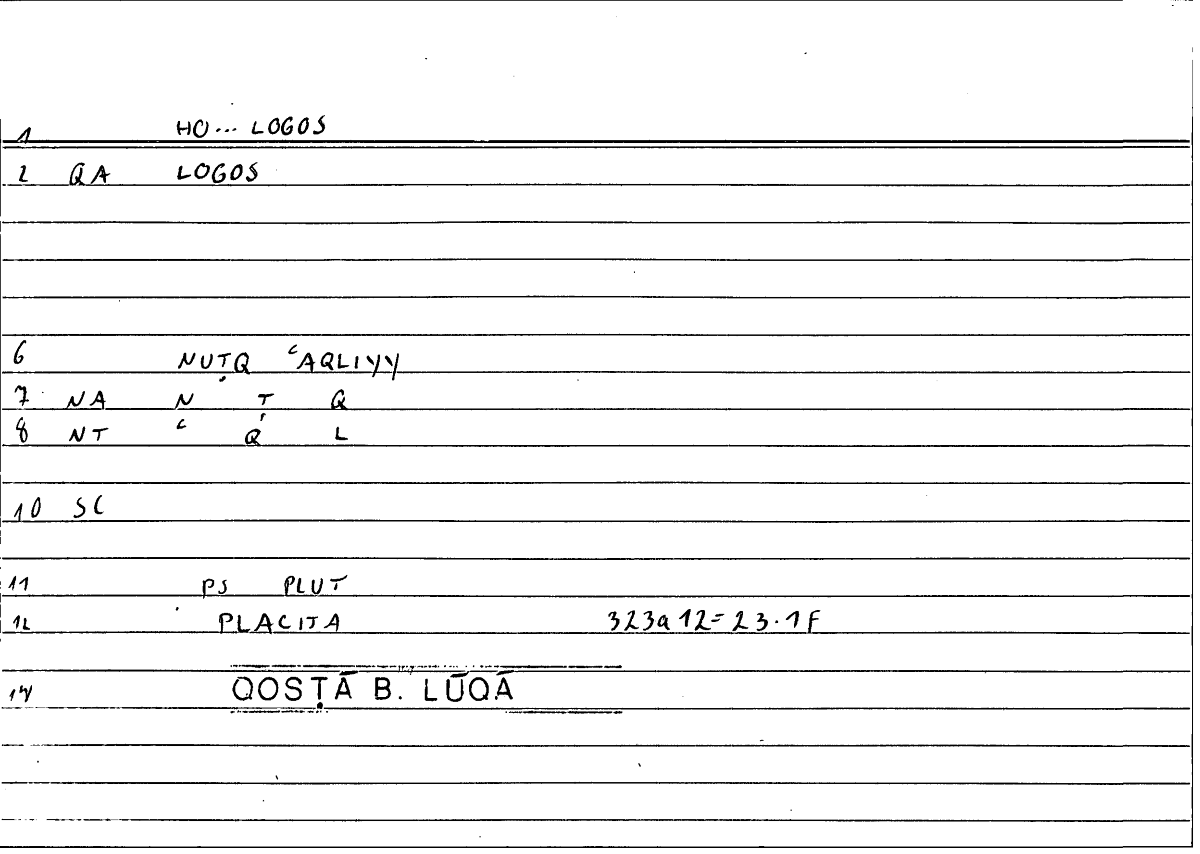 1 HO... LOGOS
2 QA LOGOS
6 NUṬQ ʿAQLIYY
7 NA N Ṭ Q
8 NT ʿ Q L
10 SC
11 PS PLUT
12 PLACITA 323a12=23.1F
14 QOSṬĀ B. LŪQĀ